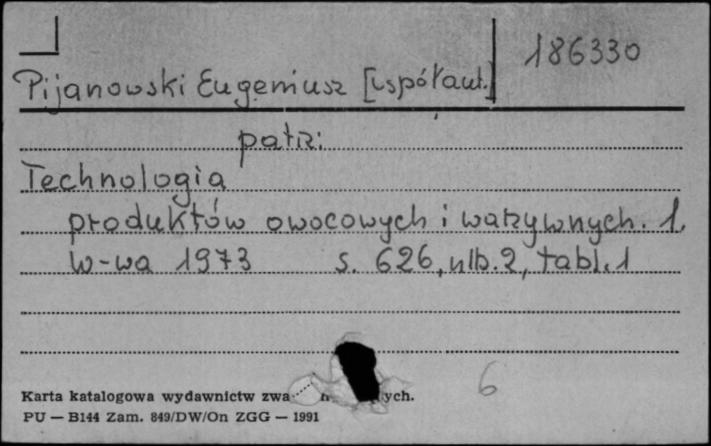 186330
Pijanowski Eugeniusz [współaut.]
patrz:
Technologia
produktów owocowych i warzywnych. 1.
W-wa 1973 s. 626, nlb. 2, tabl. 1
6
Karta katalogowa wydawnictw zwa ych.
PU — B144 Zam. 849/DW/On ZGG — 1991